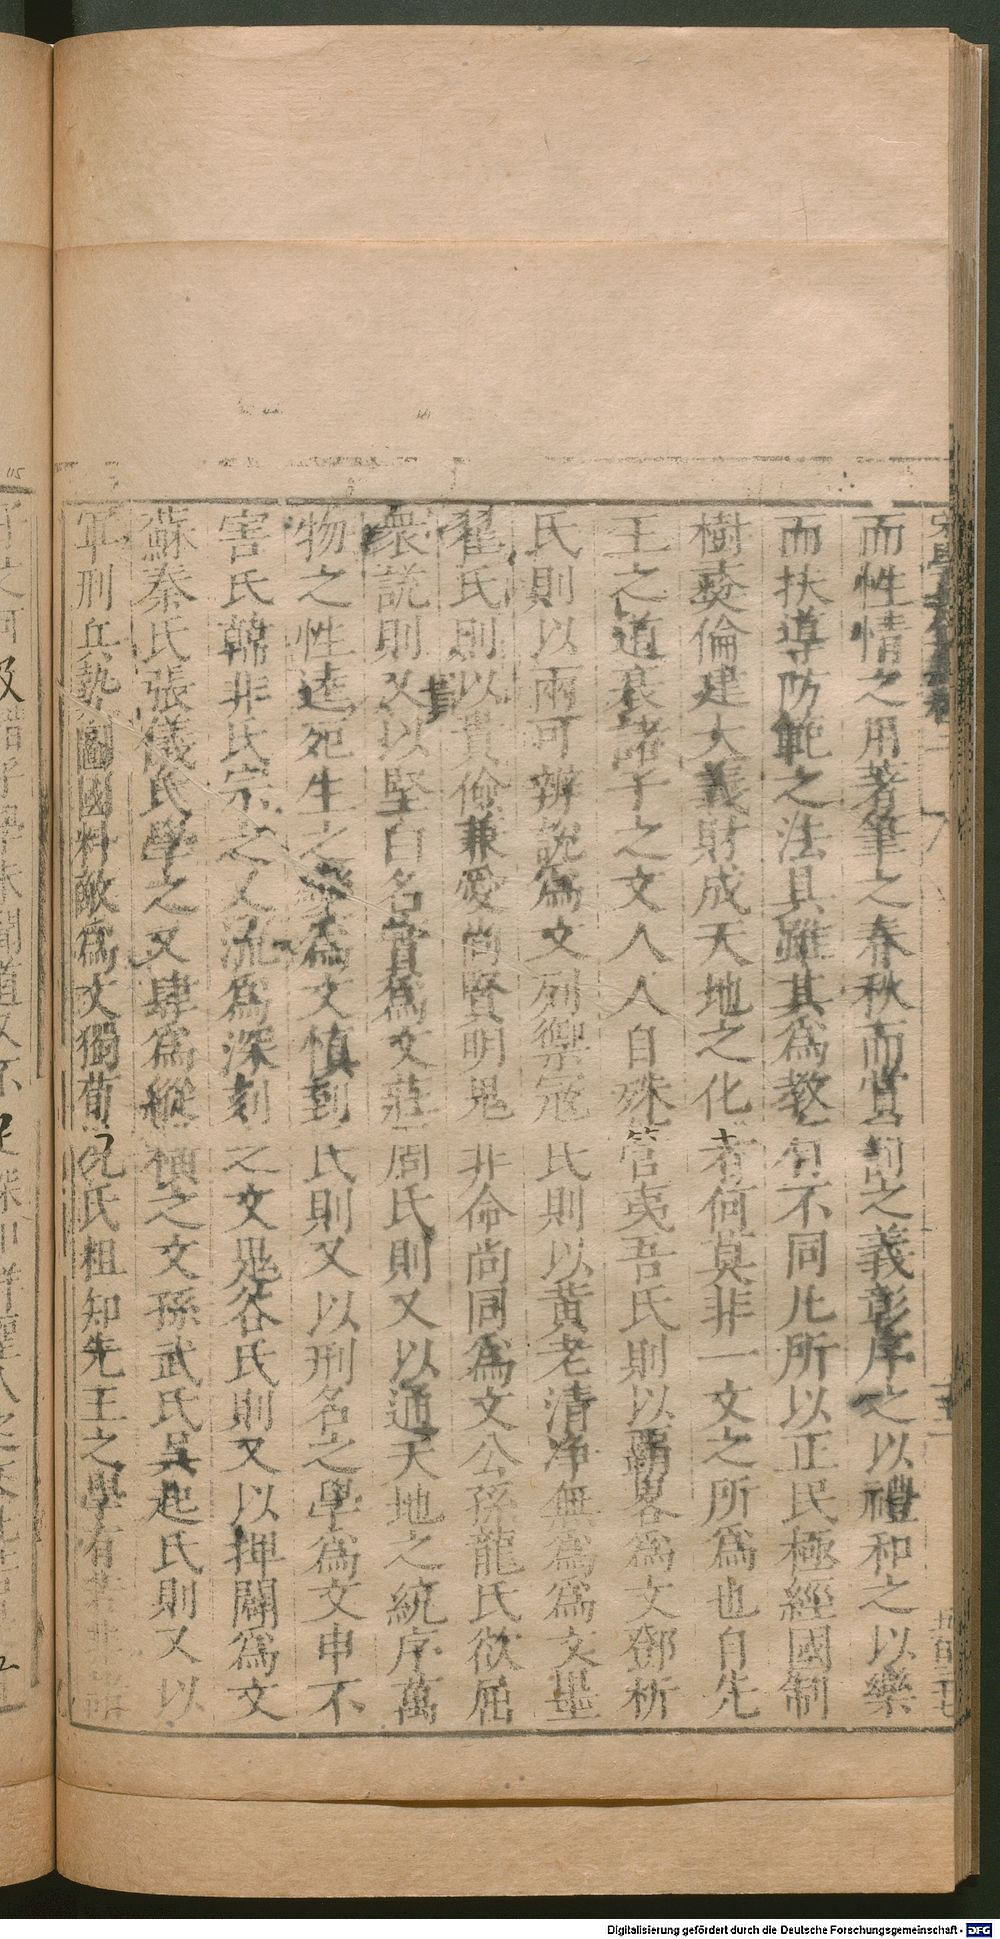 而性情之用著筆之春秋而賞罰之義彰序之以禮和之以樂
而扶導防範之法具雖其為教有不同凡所以正民極經國制
樹彞倫建大義財成天地之化者何莫非一文之所為也自先
王之道衰諸子之文人人自殊管夷吾氏則以霸畧為文鄧析
氏則以兩可辨說為文列禦冦氏則以黃老清淨無為為文墨
翟氏則以貴儉兼愛尚賢明鬼非命尚同為文公孫龍氏欲屈
衆說則又以堅白名實為文莊周氏則又以通天地之統序萬
物之性達死生之變為文慎到氏則又以刑名之學為文申不
害氏韓非氏宗之又流為深刻之文鬼谷氏則又以捭闔為文
蘇秦氏張儀氏學之又肆為縱橫之文孫武氏吳起氏則又以
軍刑兵勢圖國料敵為文獨荀況氏粗知先王之學有若非
Digitalisierung gefördert durch die Deutsche Forschungsgemeinschaft - DFG